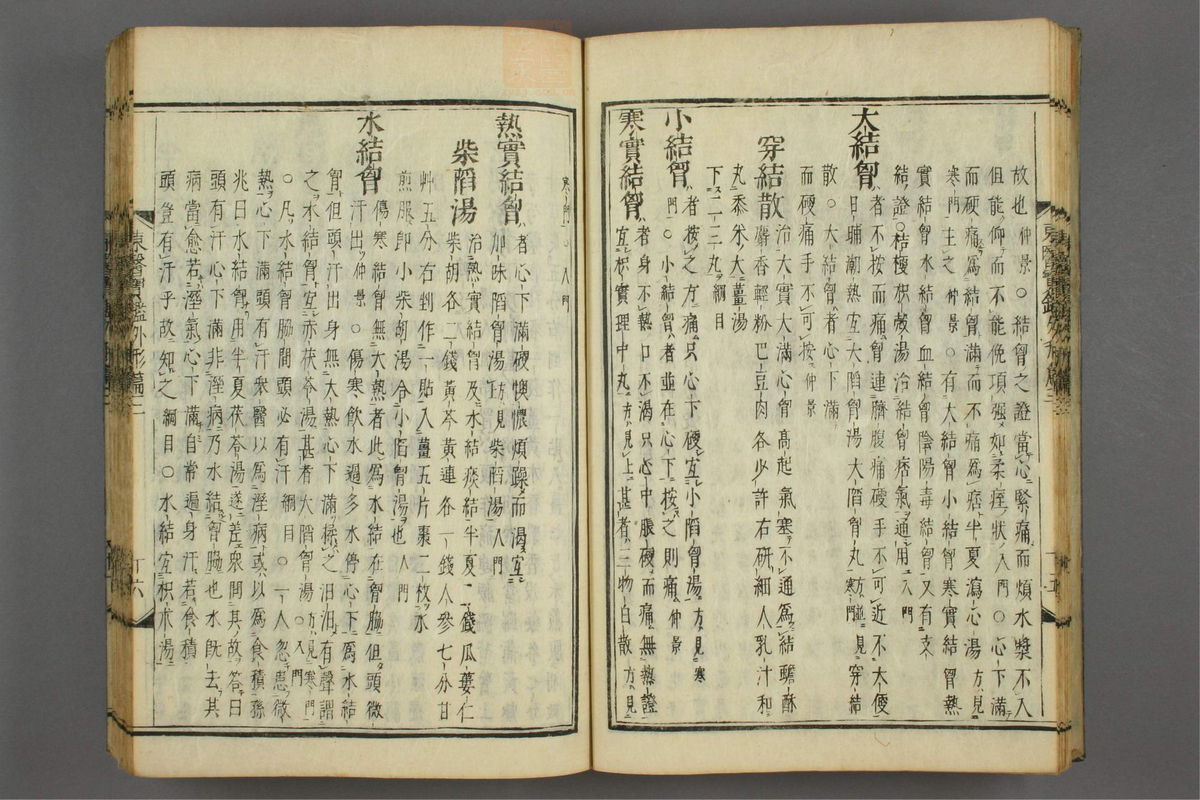 故也仲景○結胷之證當心緊痛而煩水漿不入
但能仰而不能俛項强如柔痓狀入門○心下滿
而硬痛爲結胷滿而不痛爲痞半夏瀉心湯方見
寒門主之仲景○有大結胷小結胷寒實結胷熱
實結胷水結胷血結胷陰陽毒結胷又有支
結證○桔梗枳殻湯治結胷痞氣通用入門
大結胷者不按而痛胷連臍腹痛硬手不可近不大便
日晡潮熱宜大陷胷湯大陷胷丸寒門穿結
散○大結胷者心下滿
而硬痛手不可按仲景
穿結散治大實大滿心胷高起氣塞不通爲結蟾酥
麝香輕粉巴豆肉各少許右硏細人乳汁和
丸黍米大薑湯
下二三丸綱目
小結胷者按之方痛只心下硬宜小陷胷湯方見寒
門○小結胷者並在心下按之則痛仲景
寒實結胷者身不熱口不渴只心中脹硬而痛無熱證
宜枳實理中丸方見上甚者三物白散方見
寒門○入門
熱實結胷者心下滿硬懊憹煩躁而渴宜
加味陷胷湯方見柴陷湯入門
柴陷湯治熱實結胷及水結痰結半夏二錢瓜蔞仁
柴胡各二錢黃芩黃連各一錢人參七分甘
艸五分右剉作一貼入薑五片棗二枚水
煎服卽小柴胡湯合小陷胷湯也入門
水結胷傷寒結胷無大熱者此爲水結在胷脇但頭微
汗出仲景○傷寒飮水過多水停心下爲水結
胷但頭汗出身無大熱心下滿揉之汩汩有聲謂
之水結胷宜赤茯苓湯甚者大陷胷湯方見寒門○入門
○凡水結胷脇間頭必有汗綱目○一人忽患微
熱心下滿頭有汗衆醫以爲溼病或以爲食積孫
兆曰水結胷用半夏茯苓湯遂差衆問其故答曰
頭有汗心下滿非溼病乃水結胷脇也水旣去其
病當愈若溼氣心下滿自常遍身汗若食積
頭豈有汗乎故知之綱目○水結宜枳朮湯
東醫寶鑑外形篇三
丁六